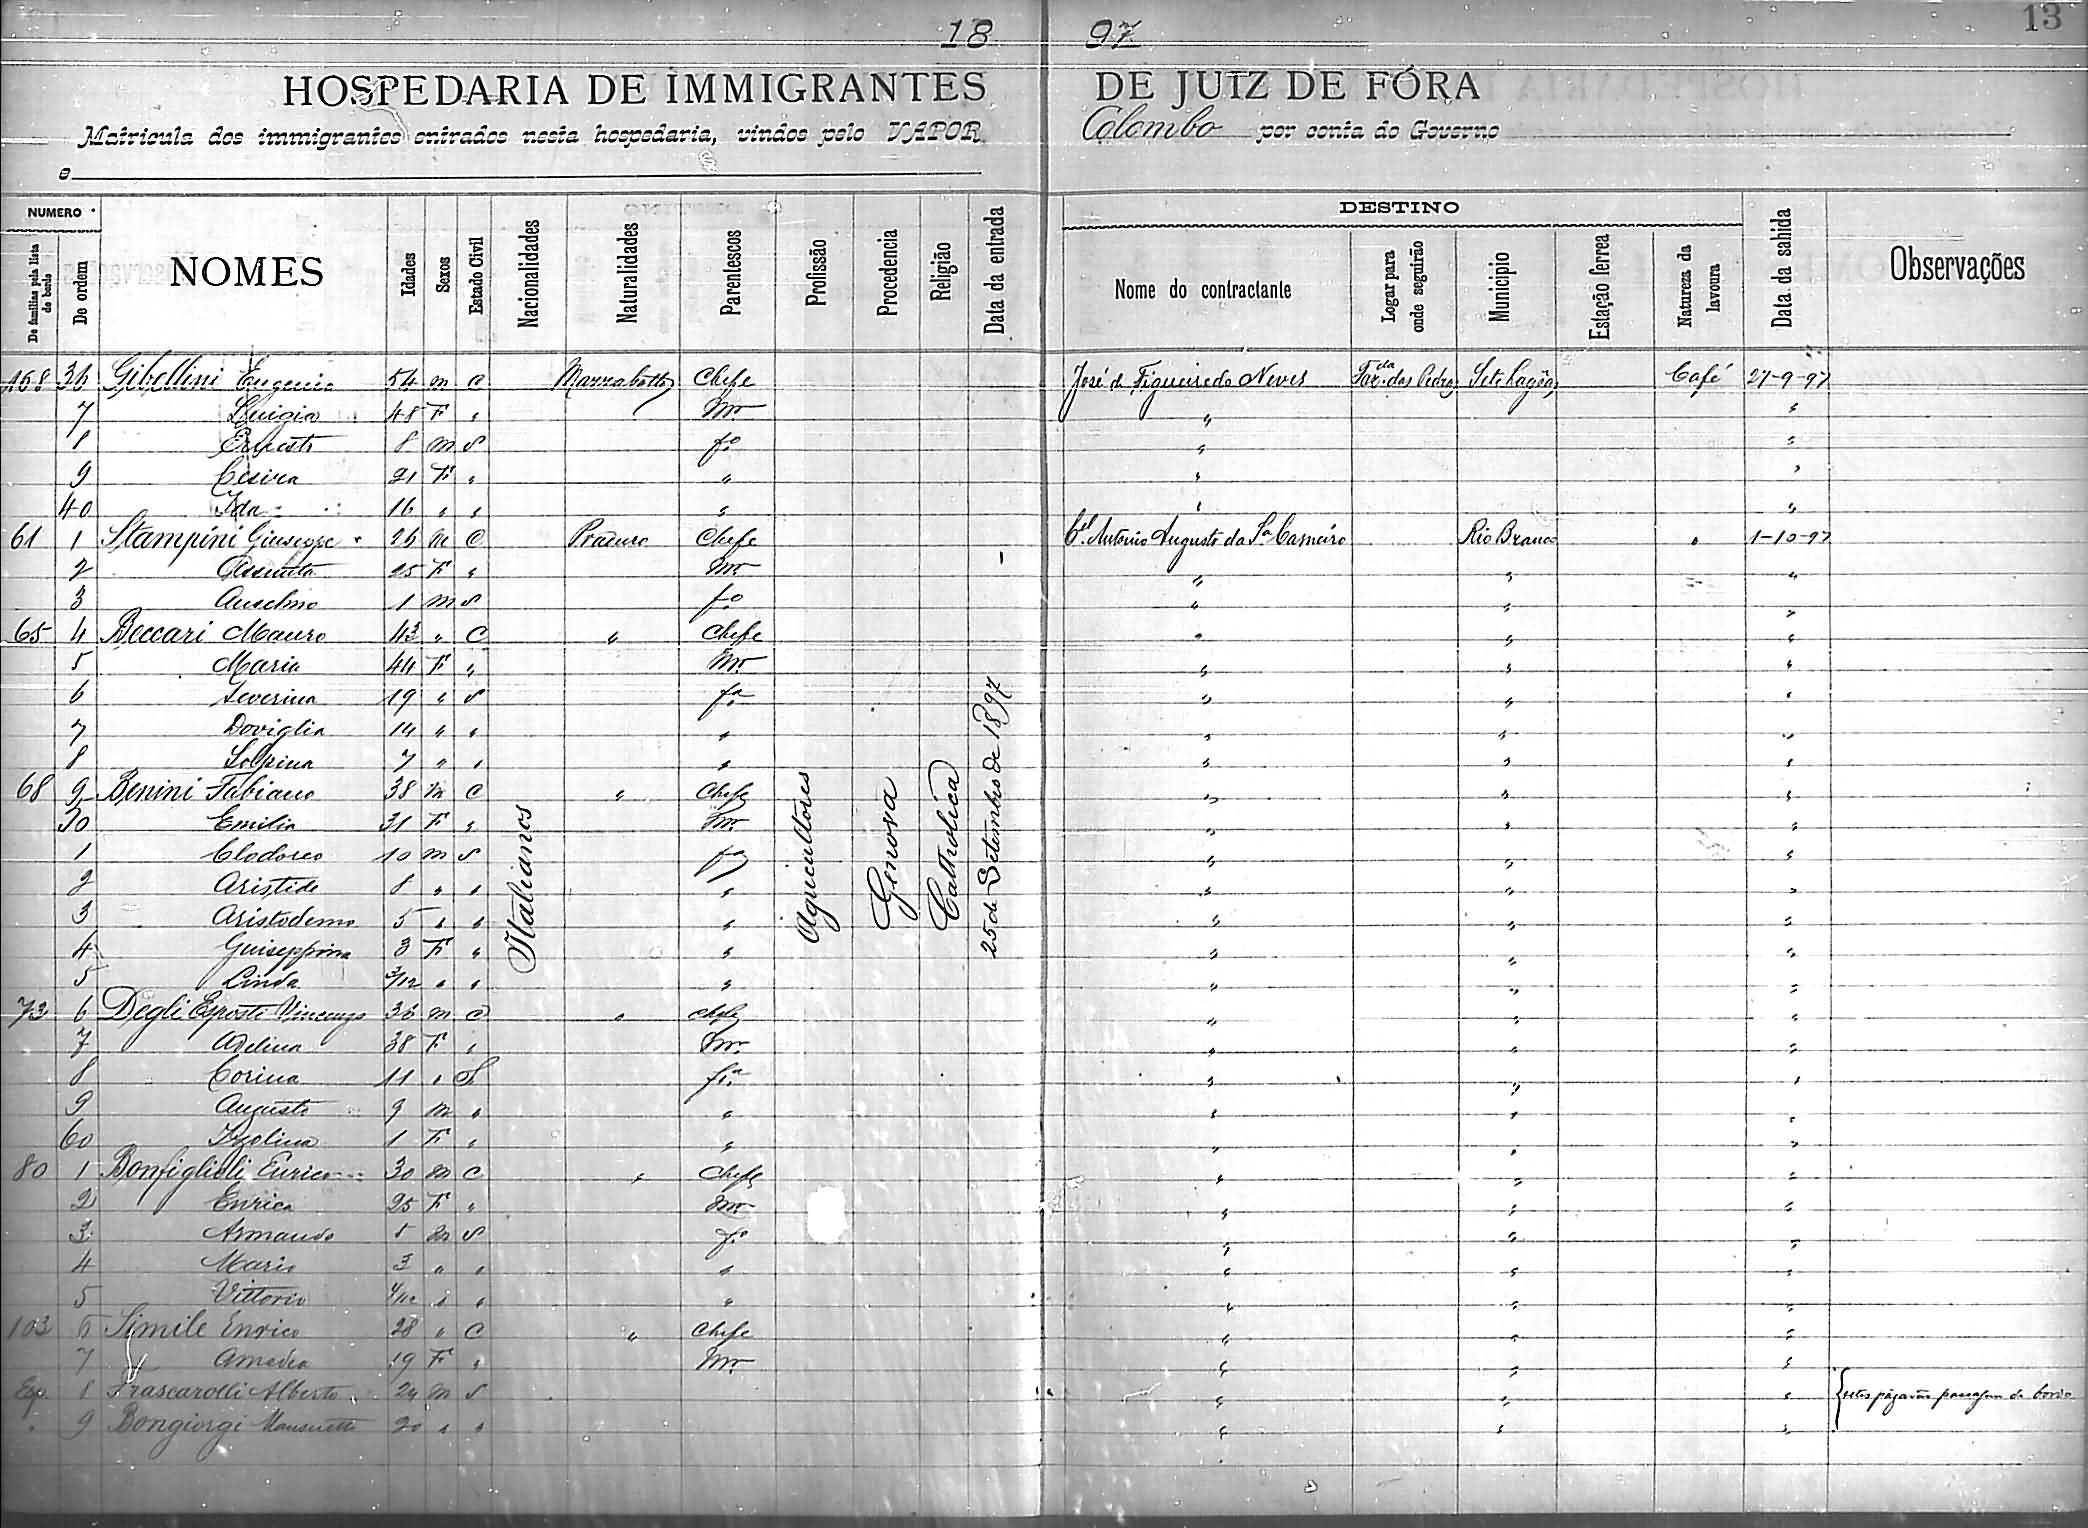 18 97
13
HOSPEDARIA DE IMMIGRANTES DE JUIZ DE FÓRA
Matricula dos immigrantes entrados nesta hospedaria, vindos pelo VAPOR Colombo por conta do Governo
e
NUMERO DESTINO
De familias pela lista de bordo De ordem NOMES Idades Sexos Estado Civil Nacionalidades Naturalidades Parentescos Profissão Procedencia Religião Data da entrada Nome do contractante Logar para onde seguirão Municipio Estação ferrea Natureza da lavoura Data da sahida Observações
Italianos Agricultores Genova Catholica 25 de Setembro de 1897
158 36 Gibellini Eugenio 54 m C Marzabotto Chefe José de Figueiredo Neves Faz.da das Pedras Sete Lagôas Café 27-9-97
7 Luigia 48 F " Mr. " "
8 Ernesto 8 m S fo " "
9 Cesira 21 F " " " "
40 Ida 16 " " " " "
61 1 Stampini Giuseppe 26 m C Praduro Chefe Cel. Antonio Augusto da Sa Carneiro Rio Branco " 1-10-97
2 Assunta 25 F " Mr. " " "
3 Anselmo 1 m S fo " " "
65 4 Beccari Mauro 43 " C " Chefe " " "
5 Maria 44 F " Mr. " " "
6 Severina 19 " S fa " " "
7 Doviglia 14 " " " " " "
8 7 " " " " " "
68 9 Benini Fabiano 38 m C " Chefe " " "
50 Emilia 31 F " Mr. " " "
1 Clodoveo 10 m S fo " " "
2 Aristide 8 " " " " " "
3 Aristodemo 5 " " " " " "
4 Guiseppina 3 F " " " " "
5 Linda 3/12 " " " " " "
73 6 Degli Esposti Vincenzo 36 m C " Chefe " " "
7 Adelina 38 F " Mr. " " "
8 Corina 11 " S fa " " "
9 Augusto 9 m " " " " "
60 Isolina 1 F " " " " "
80 1 Bonfiglioli Enrico 30 m C " Chefe " " "
2 Enrica 25 F " Mr. " " "
3 Armando 5 m S fo " " "
4 Mario 3 " " " " " "
5 Vittorio " " " " " "
103 6 Simile Enrico 28 " C " Chefe " " "
7 Amedea 19 F " Mr. " " "
Esp. 8 Frascarolli Alberto 24 m S " " " { estes pagarão passagem de bordo
" 9 Bongiorgi Mansueto 20 " " " " "